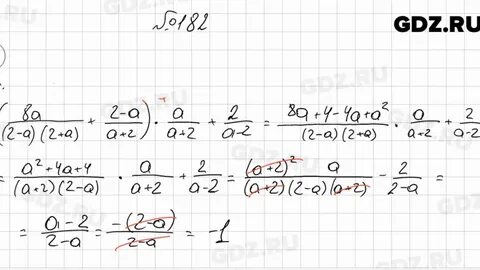 №182
GDZ.RU
(8a/((2-a)(2+a)) + (2-a)/(a+2)) · a/(a+2) + 2/(a-2) = (8a+4-4a+a²)/((2-a)(2+a)) · a/(a+2) + 2/(a-2)
= (a²+4a+4)/((a+2)(2-a)) · a/(a+2) + 2/(a-2) = ((a+2)² a)/((a+2)(2-a)(a+2)) - 2/(2-a) =
= (a-2)/(2-a) = (-(2-a))/(2-a) = -1
GDZ.RU